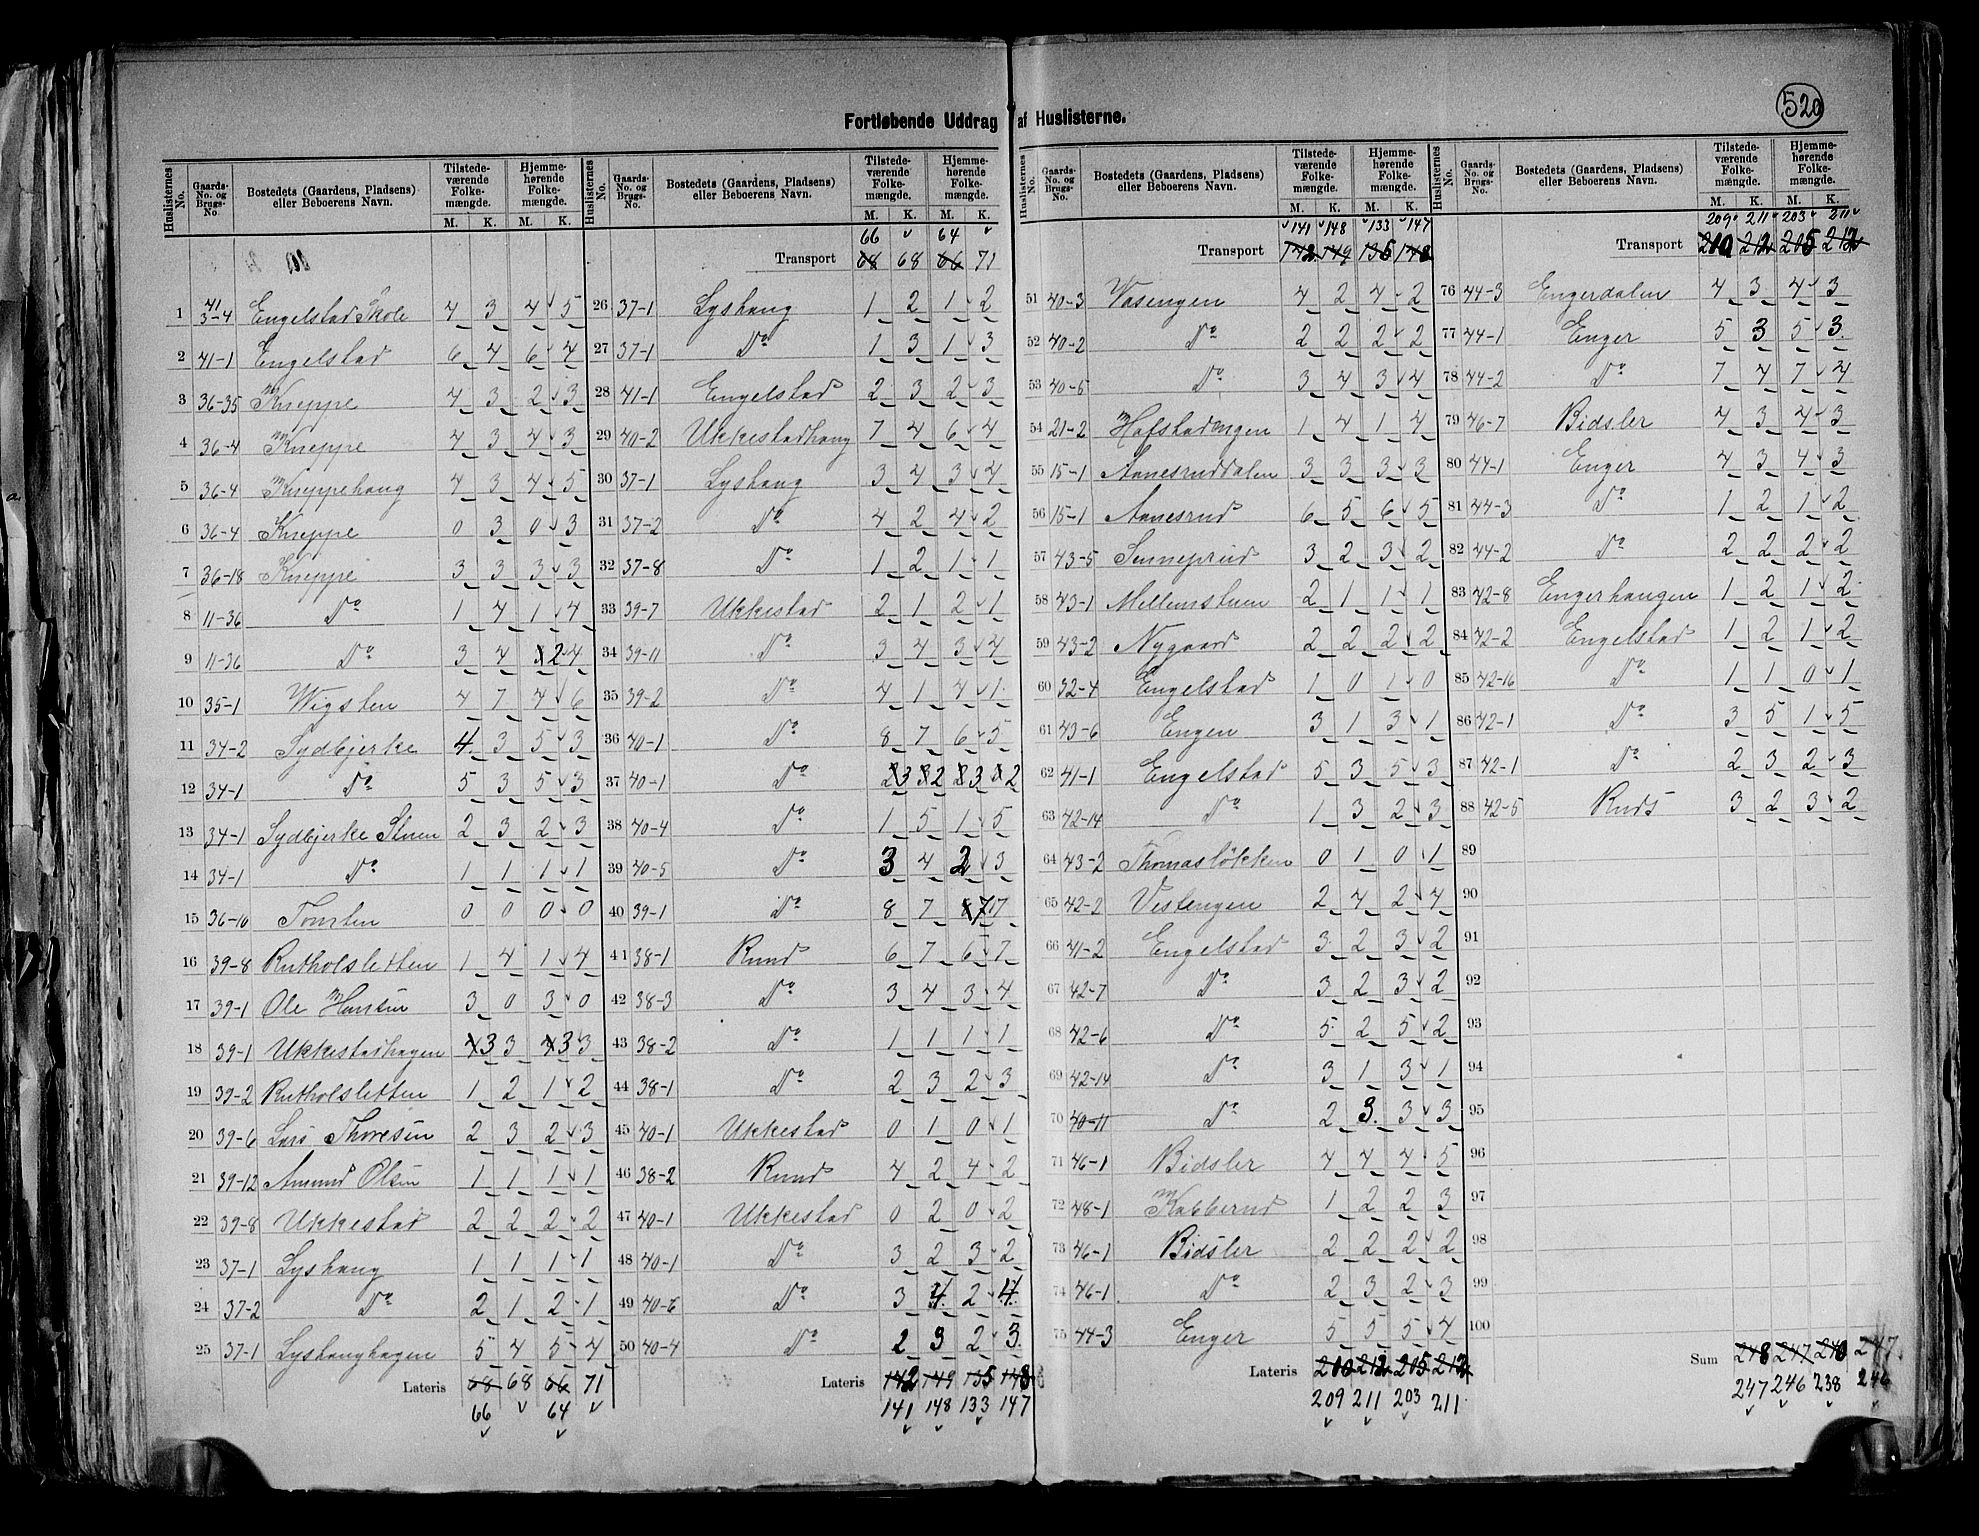 520
Fortløbende Uddrag af Huslisterne.
Huslisternes No. | Gaards-No. og Brugs-No. | Bostedets (Gaardens, Pladsens) eller Beboerens Navn. | Tilstedeværende Folkemængde. M. K. | Hjemmehørende Folkemængde. M. K.
1 41 3-4 Engelstad Skole 4 3 4 5
2 41-1 Engelstad 6 4 6 4
3 36-35 Kneppe 4 3 2 3
4 36-4 Kneppe 4 3 4 3
5 36-4 Kneppehaug 4 3 4 5
6 36-4 Kneppe 0 3 0 3
7 36-18 Kneppe 3 3 3 3
8 11-36 Do 1 4 1 4
9 11-36 Do 3 4 2 4
10 35-1 Wigsten 4 7 4 6
11 34-2 Sydbjerke 4 3 5 3
12 34-1 Do 5 3 5 3
13 34-1 Sydbjerke Stuen 2 3 2 3
14 34-1 Do 1 1 1 1
15 36-10 Tomten 0 0 0 0
16 39-8 Rutholsletten 1 4 1 4
17 39-1 Ole Hansen 3 0 3 0
18 39-1 Ukkestadhagen 4 3 3 4 3 3
19 39-2 Rutholsletten 1 2 1 2
20 39-6 Lars Thoresen 2 3 2 3
21 39-12 Amund Olsen 1 1 1 1
22 39-8 Ukkestad 2 2 2 2
23 37-1 Lyshaug 1 1 1 1
24 37-2 Do 2 1 2 1
25 37-1 Lyshaughagen 5 4 5 4
Lateris 68 68 66 71
66 64
66 64
Transport 68 68 66 71
26 37-1 Lyshaug 1 2 1 2
27 37-1 Do 1 3 1 3
28 41-1 Engelstad 2 3 2 3
29 40-2 Ukkestadhaug 7 4 6 4
30 37-1 Lyshaug 3 4 3 4
31 37-2 Do 4 2 4 2
32 37-8 Do 1 2 1 1
33 39-7 Ukkestad 2 1 2 1
34 39-11 Do 3 4 3 4
35 39-2 Do 4 1 4 1
36 40-1 Do 8 7 6 5
37 40-1 Do 3 2 3 2
38 40-4 Do 1 5 1 5
39 40-5 Do 3 4 2 3
40 39-1 Do 8 7 8 7 7
41 38-1 Ruud 6 7 6 7
42 38-3 Do 3 4 3 4
43 38-2 Do 1 1 1 1
44 38-1 Do 2 3 2 3
45 40-1 Ukkestad 0 1 0 1
46 38-2 Ruud 4 2 4 2
47 40-1 Ukkestad 0 2 0 2
48 40-1 Do 3 2 3 2
49 40-6 Do 3 4 2 4
50 40-4 Do 2 3 2 3
Lateris 142 149 135 148
141 148 133 147
141 148 133 147
Transport 142 149 135 148
51 40-3 Vasengen 4 2 4 2
52 40-2 Do 2 2 2 2
53 40-5 Do 3 4 3 4
54 21-2 Hofstadengen 1 4 1 4
55 15-1 Aanesruddalen 3 3 3 3
56 15-1 Aanesrud 6 5 6 5
57 43-5 Senneprud 3 2 3 2
58 43-1 Mellemstuen 2 1 1 1
59 43-2 Nygaard 2 2 2 2
60 32-4 Engelstad 1 0 1 0
61 43-6 Engen 3 1 3 1
62 41-1 Engelstad 5 3 5 3
63 42-14 Do 1 3 2 3
64 43-2 Thomasløkken 0 1 0 1
65 42-2 Vestengen 2 4 2 4
66 41-2 Engelstad 3 2 3 2
67 42-7 Do 3 2 3 2
68 42-6 Do 5 2 5 2
69 42-14 Do 3 1 3 1
70 40-11 Do 2 3 3 3
71 46-1 Bidsler 4 4 4 5
72 48-1 Kabberud 1 2 2 3
73 46-1 Bidsler 2 2 2 2
74 46-1 Do 2 3 2 3
75 44-3 Enger 5 5 5 4
Lateris 210 212 205 212
209 211 203 211
209 211 203 211
Transport 210 212 205 212
76 44-3 Engerdalen 4 3 4 3
77 44-1 Enger 5 3 5 3
78 44-2 Do 7 4 7 4
79 46-7 Bidsler 4 3 4 3
80 44-1 Enger 4 3 4 3
81 44-3 Do 1 2 1 2
82 44-2 Do 2 2 2 2
83 42-8 Engerhaugen 1 2 1 2
84 42-2 Engelstad 1 2 1 2
85 42-16 Do 1 1 0 1
86 42-1 Do 3 5 1 5
87 42-1 Do 2 3 2 3
88 42-5 Ruds 3 2 3 2
89
90
91
92
93
94
95
96
97
98
99
100
Sum 248 247 240 247
247 246 238 246